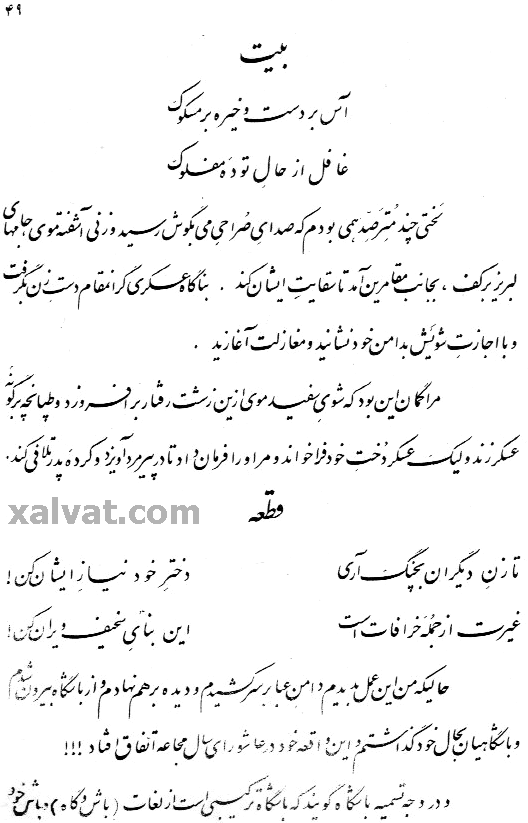 ۴۹
بیت
آس بر دست و خیره بر مسکوک
غافل از حالِ تودهٔ مفلوک
لختی چند مترصد همی بودم که صدایِ صُراحیِ می بگوش رسید و زنی آشفته موی جامهای
لبریز بر کف ، بجانب مقامرین آمد تا سقایتِ ایشان کند . بناگاه عسکری گرانمقام دستِ زن بگرفت
و با اجازتِ شویَش بدامن خود نشانید و مغازلت آغازید .
مرا گمان این بود که شویِ سفید موی ازین زشت رفتار بر افروزد و طپانچه بر گونهٔ
عسکر زند ولیک عسکر دُختِ خود فرا خواند و مر او را فرمان داد تا در پیر مرد آویزد و کردهٔ پدر تلافی کند.
xalvat.com
قطعه
تا زنِ دیگران بچنگ آری دخترِ خود نیازِ ایشان کن!
غیرت از جُملهٔ خرافات است این بنایِ سخیف ویران کن!
حالیکه من این عمل بدیدم دامن عبا بر سر کشیدم و دیده بر هم نهادم و از باشگاه بیرون شدم
و باشگاهیان بحال خود گذاشتم و این واقعه خود در عاشورای سال مجاعه اتفاق افتاد !!!
و در وجه تسمیه باشگاه گویند که باشگاه ترکیبی است از لغات (باش و گاه) و باش خود